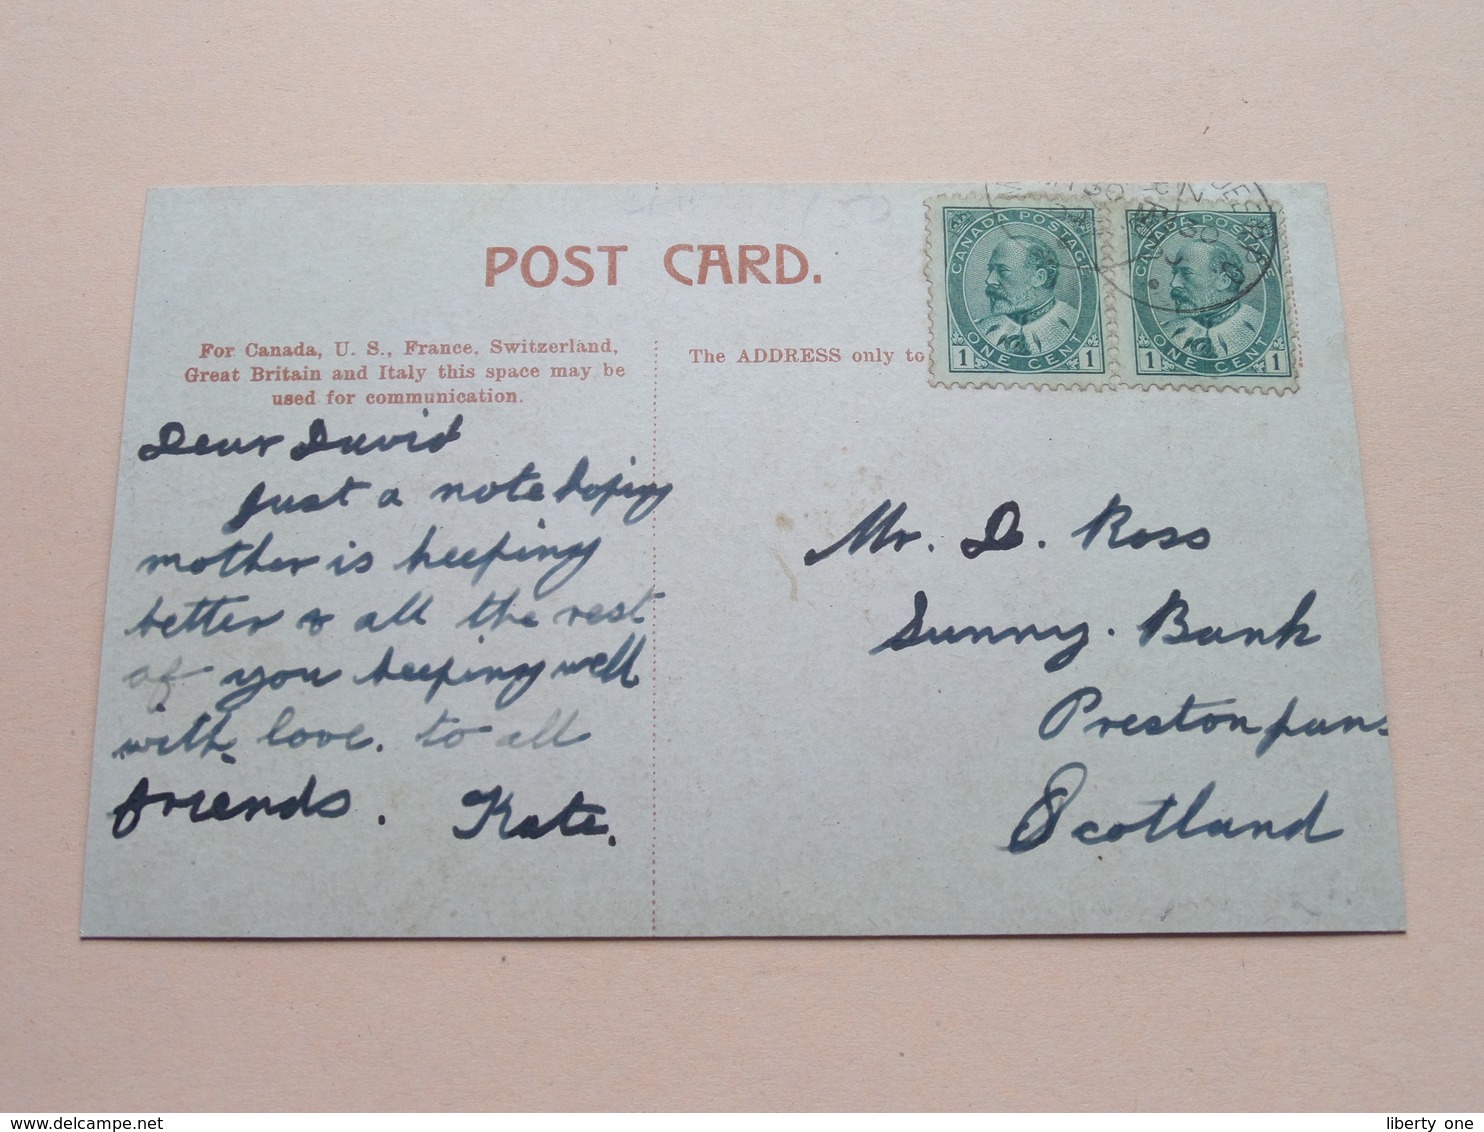 POST CARD.
For Canada, U. S., France, Switzerland,
Great Britain and Italy this space may be
used for communication.
The ADDRESS only to
CANADA POSTAGE
1 ONE CENT 1
CANADA POSTAGE
1 ONE CENT 1
Dear David
Just a note hoping
mother is keeping
better & all the rest
of you keeping well
with love. to all
friends. Kate.
Mr. D. Ross
Sunny. Bank
Prestonpans
Scotland
delcampe.net
liberty one